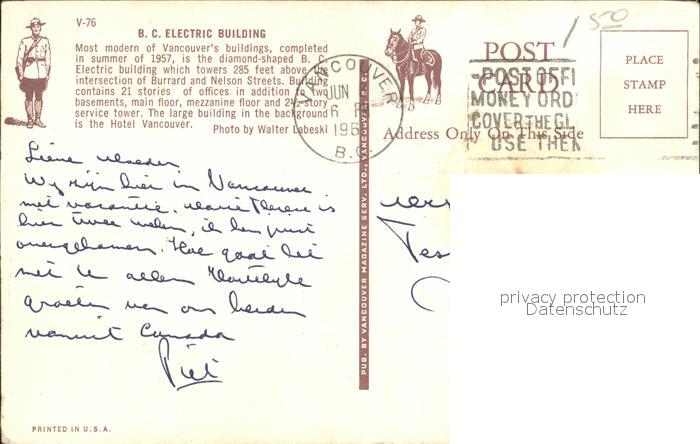 V-76
B. C. ELECTRIC BUILDING
Most modern of Vancouver's buildings, completed
in summer of 1957, is the diamond-shaped B. C.
Electric building which towers 285 feet above the
intersection of Burrard and Nelson Streets. Building
contains 21 stories of offices in addition to two
basements, main floor, mezzanine floor and 2½-story
service tower. The large building in the background
is the Hotel Vancouver. Photo by Walter Labeski
VANCOUVER
JUN
6 P
195
B.C.
POST
CARD
Address Only On This Side
POST OFFI
MONEY ORD
COVER THE GL
USE THEM
1.50
PLACE
STAMP
HERE
Lieve
Wij zijn hier in Vancouver
met vacantie. Marie Therese is
hier twee weken, ik ben juist
overgekomen. Hoe gaat het
met U allen Hartelijke
groeten van ons beiden
vanuit Canada
Piet
PUB. BY VANCOUVER MAGAZINE SERV. LTD., VANCOUVER, B. C.
privacy protection
Datenschutz
PRINTED IN U.S.A.